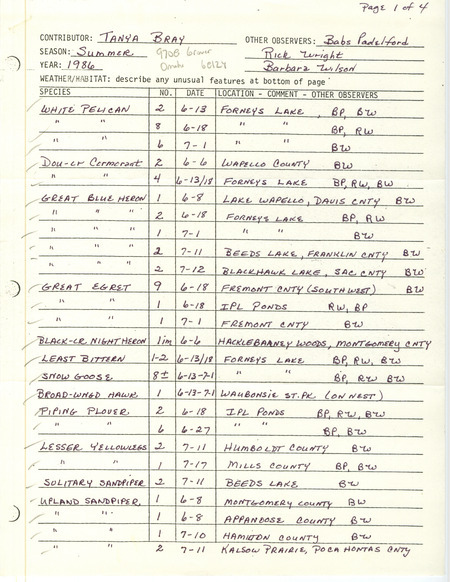 Page 1 of 4
CONTRIBUTOR: TANYA BRAY OTHER OBSERVERS: Babs Padelford
SEASON: Summer 9708 Grover Rick Wright
YEAR: 1986 Omaha 68124 Barbara Wilson
WEATHER/HABITAT: describe any unusual features at bottom of page
SPECIES NO. DATE LOCATION - COMMENT - OTHER OBSERVERS
WHITE PELICAN 2 6-13 FORNEYS LAKE, BP, BW
" " 8 6-18 " " BP, RW
" " 6 7-1 " " BW
Dou-cr Cormorant 2 6-6 WAPELLO COUNTY BW
" " 4 6-13/18 FORNEYS LAKE BP, RW, BW
GREAT BLUE HERON 1 6-8 LAKE WAPELLO, DAVIS CNTY BW
" " " 2 6-18 FORNEYS LAKE BP, RW
" " " 1 7-1 " " BW
" " " 2 7-11 BEEDS LAKE, FRANKLIN CNTY BW
" " " 2 7-12 BLACKHAWK LAKE, SAC CNTY BW
GREAT EGRET 9 6-18 FREMONT CNTY (SOUTHWEST) BW
" " 1 6-18 IPL PONDS RW, BP
" " 1 7-1 FREMONT CNTY BW
BLACK-CR NIGHT HERON 1im 6-6 HACKLEBARNEY WOODS, MONTGOMERY CNTY
LEAST BITTERN 1-2 6-13/18 FORNEYS LAKE BP, RW, BW
SNOW GOOSE 8± 6-13-7-1 " " BP, RW BW
BROAD-WNGD HAWK 1 6-13-7-1 WAUBONSIE ST. PK (ON NEST)
PIPING PLOVER 2 6-18 IPL PONDS BP, RW, BW
" " 6 6-27 " " BP, BW
LESSER YELLOWLEGS 2 7-11 HUMBOLDT COUNTY BW
" " 1 7-17 MILLS COUNTY BP, BW
SOLITARY SANDPIPER 2 7-11 BEEDS LAKE BW
UPLAND SANDPIPER. 1 6-8 MONTGOMERY COUNTY BW
" " 1 6-8 APPANOOSE COUNTY BW
" " 1 7-10 HAMILTON COUNTY BW
" " 2 7-11 KALSOW PRAIRIE, POCAHONTAS CNTY